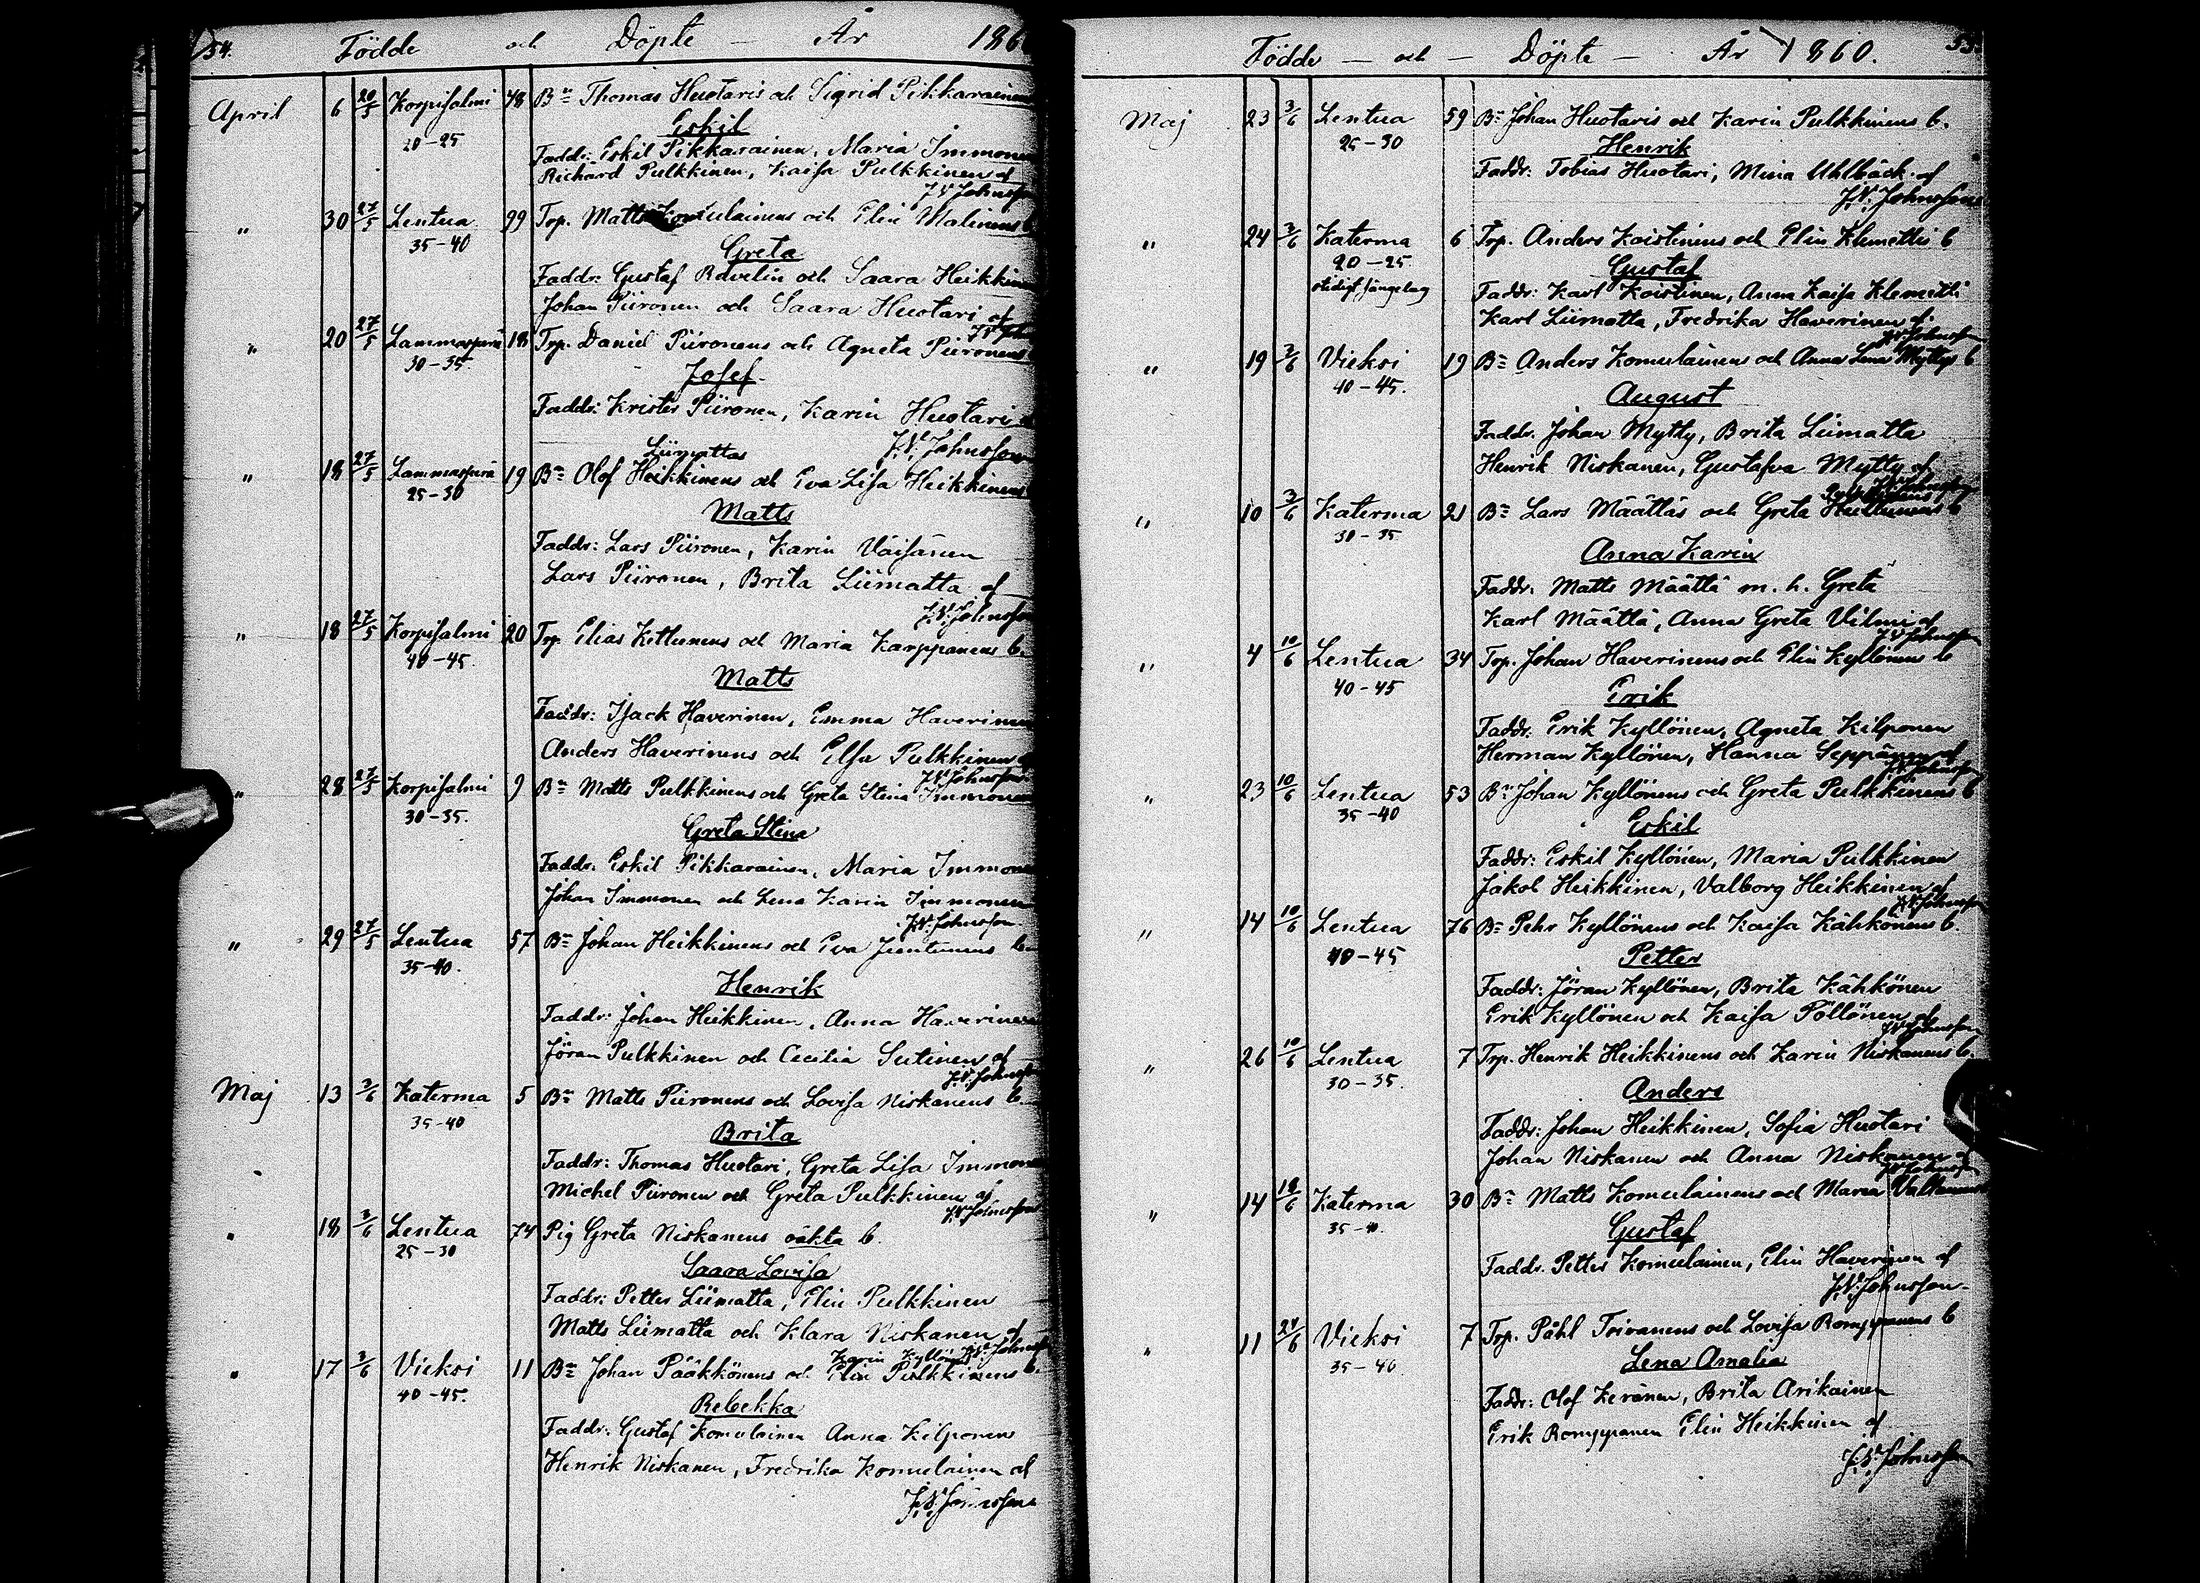 54. Födde och Döpte — År 186
April 6 20/5 Korpisalmi 48 Bn Thomas Huotaris och Sigrid Pikkarainens
20-25 Eskil
Faddr: Eskil Pikkarainen, Maria Immonen
Richard Pulkkinen, Kaisa Pulkkinen af
J.V. Johnsson
" 30 27/5 Lentua 99 Trp. Matts Komulainens och Elin Malinens b
35-40 Greta
Faddr. Gustaf och Saara Heikkinen
Johan Piironen och Saara Huotari af
J.V. John
" 20 27/5 Lammasperä 18 Trp. Daniel Piironens och Agneta Piironens
30-35. Josef.
Faddr: Krister Piironen, Karin Huotari af
J.V. Johnsson
Liimattas
" 18 27/5 Lammasperä 19 Bn Olof Heikkinens och Eva Lisa Heikkinens
25-30
Matts
Faddr: Lars Piironen, Karin Väisänen
Lars Piironen, Brita Liimatta af
J.V. Johnsson
" 18 27/5 Korpisalmi 20 Trp Elias Kettunens och Maria Karppanens b.
40-45.
Matts
Faddr: Isack Haverinen, Emma Haverinen
Anders Haverinens och Elsa Pulkkinen af
J.V. Johnsson
" 28 27/5 Korpisalmi 9 Bn Matts Pulkkinens och Greta Stina Immonens
30-35. Greta Stina
Faddr. Eskil Pikkarainen, Maria Immonen
Johan Immonen och Lena Karin Immonen
J.V. Johnsson
" 29 27/5 Lentua 57 Bn Johan Heikkinens och Eva Juntunens b
35-40.
Henrik
Faddr: Johan Heikkinen, Anna Haverinen
Jöran Pulkkinen och Cecilia Sutinen af
J.V. Johnsson
Maj 13 3/6 Katerma 5 Bn Matts Piironens och Lovisa Niskanens b
35-40
Brita
Faddr: Thomas Huotari, Greta Lisa Immonen
Michel Piironen och Greta Pulkkinen af
J.V. Johnsson
" 18 3/6 Lentua 74 Pig Greta Niskanens oäkta b.
25-30
Saara Lovisa
Faddr: Petter Liimatta, Elin Pulkkinen
Matts Liimatta och Klara Niskanen af
J.V. Johnsson
Karin Kyllönens
" 17 3/6 Vieksi 11 Bn Johan Pääkkönens och Elin Pulkkinens b.
40-45.
Rebekka
Faddr: Gustaf Komulainen Anna Kilponen
Henrik Niskanen, Fredrika Komulainen af
J.V. Johnsson
Födde — och — Döpte — År 1860.
Maj 23 3/6 Lentua 59 Bn Johan Huotaris och Karin Pulkkinens b.
25-30 Henrik
Faddr: Tobias Huotari, Mina Uhlbäck af
J.V. Johnsson
" 24 3/6 Katerma 6 Trp. Anders Koistinens och Elin Klemettis b
20-25.
Gustaf
Faddr: Karl Koistinen, Anna Kaisa Klemetti
Karl Liimatta, Fredrika Haverinen af
J.V. Johnsson
" 19 3/6 Vieksi 19 Bn Anders Komulainens och Anna Lena Myttys b
40-45.
August
Faddr. Johan Mytty, Brita Liimatta
Henrik Niskanen, Gustafva Mytty af
J.V. Johnsson
" 10 3/6 Katerma 21 Bn Lars Määttäs och Greta b
30-35
Anna Karin
Faddr. Matts Määttä m. h. Greta
Karl Määttä, Anna Greta Vilmi af
J.V. Johnsson
" 4 10/6 Lentua 34 Trp. Johan Haverinens och Elin Kyllönens b
40-45
Erik
Faddr: Erik Kyllönen, Agneta Kilponen
Herman Kyllönen, Hanna Seppänen af
J.V. Johnsson
" 23 10/6 Lentua 53 Bn Johan Kyllönens och Greta Pulkkinens b
35-40
Eskil
Faddr: Eskil Kyllönen, Maria Pulkkinen
Jakob Heikkinen, Valborg Heikkinen af
J.V. Johnsson
" 14 10/6 Lentua 76 Bn Pehr Kyllönens och Kaisa Kähkönens b.
40-45
Petter
Faddr: Jöran Kyllönen, Brita Kähkönen
Erik Kyllönen och Kaisa Pöllönen af
J.V. Johnsson
" 26 10/6 Lentua 7 Trp. Henrik Heikkinens och Karin Niskanens b.
30-35.
Anders
Faddr: Johan Heikkinen, Sofia Huotari
Johan Niskanen och Anna Niskanen af
J.V. Johnsson
" 14 18/6 Katerma 30 Bn Matts Komulainens och Maria Valtanens
35-40.
Gustaf
Faddr. Petter Komulainen, Elin Haverinen af
J.V. Johnsson
" 11 24/6 Vieksi 7 Trp. Påhl Toivanens och Lovisa Romppanens b
35-40
Lena Amalia
Faddr: Olof Keränen, Brita Arikainen
Erik Romppanen Elin Heikkinen af
J.V. Johnsson